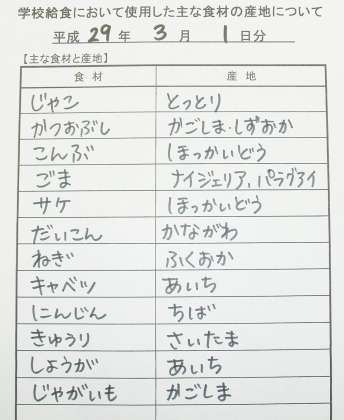 学校給食において使用した主な食材の産地について
平成 29 年 3 月 1 日分
【主な食材と産地】
食材 産地
じゃこ とっとり
かつおぶし かごしま・しずおか
こんぶ ほっかいどう
ごま ナイジェリア、パラグアイ
サケ ほっかいどう
だいこん かながわ
ねぎ ふくおか
キャベツ あいち
にんじん ちば
きゅうり さいたま
しょうが あいち
じゃがいも かごしま